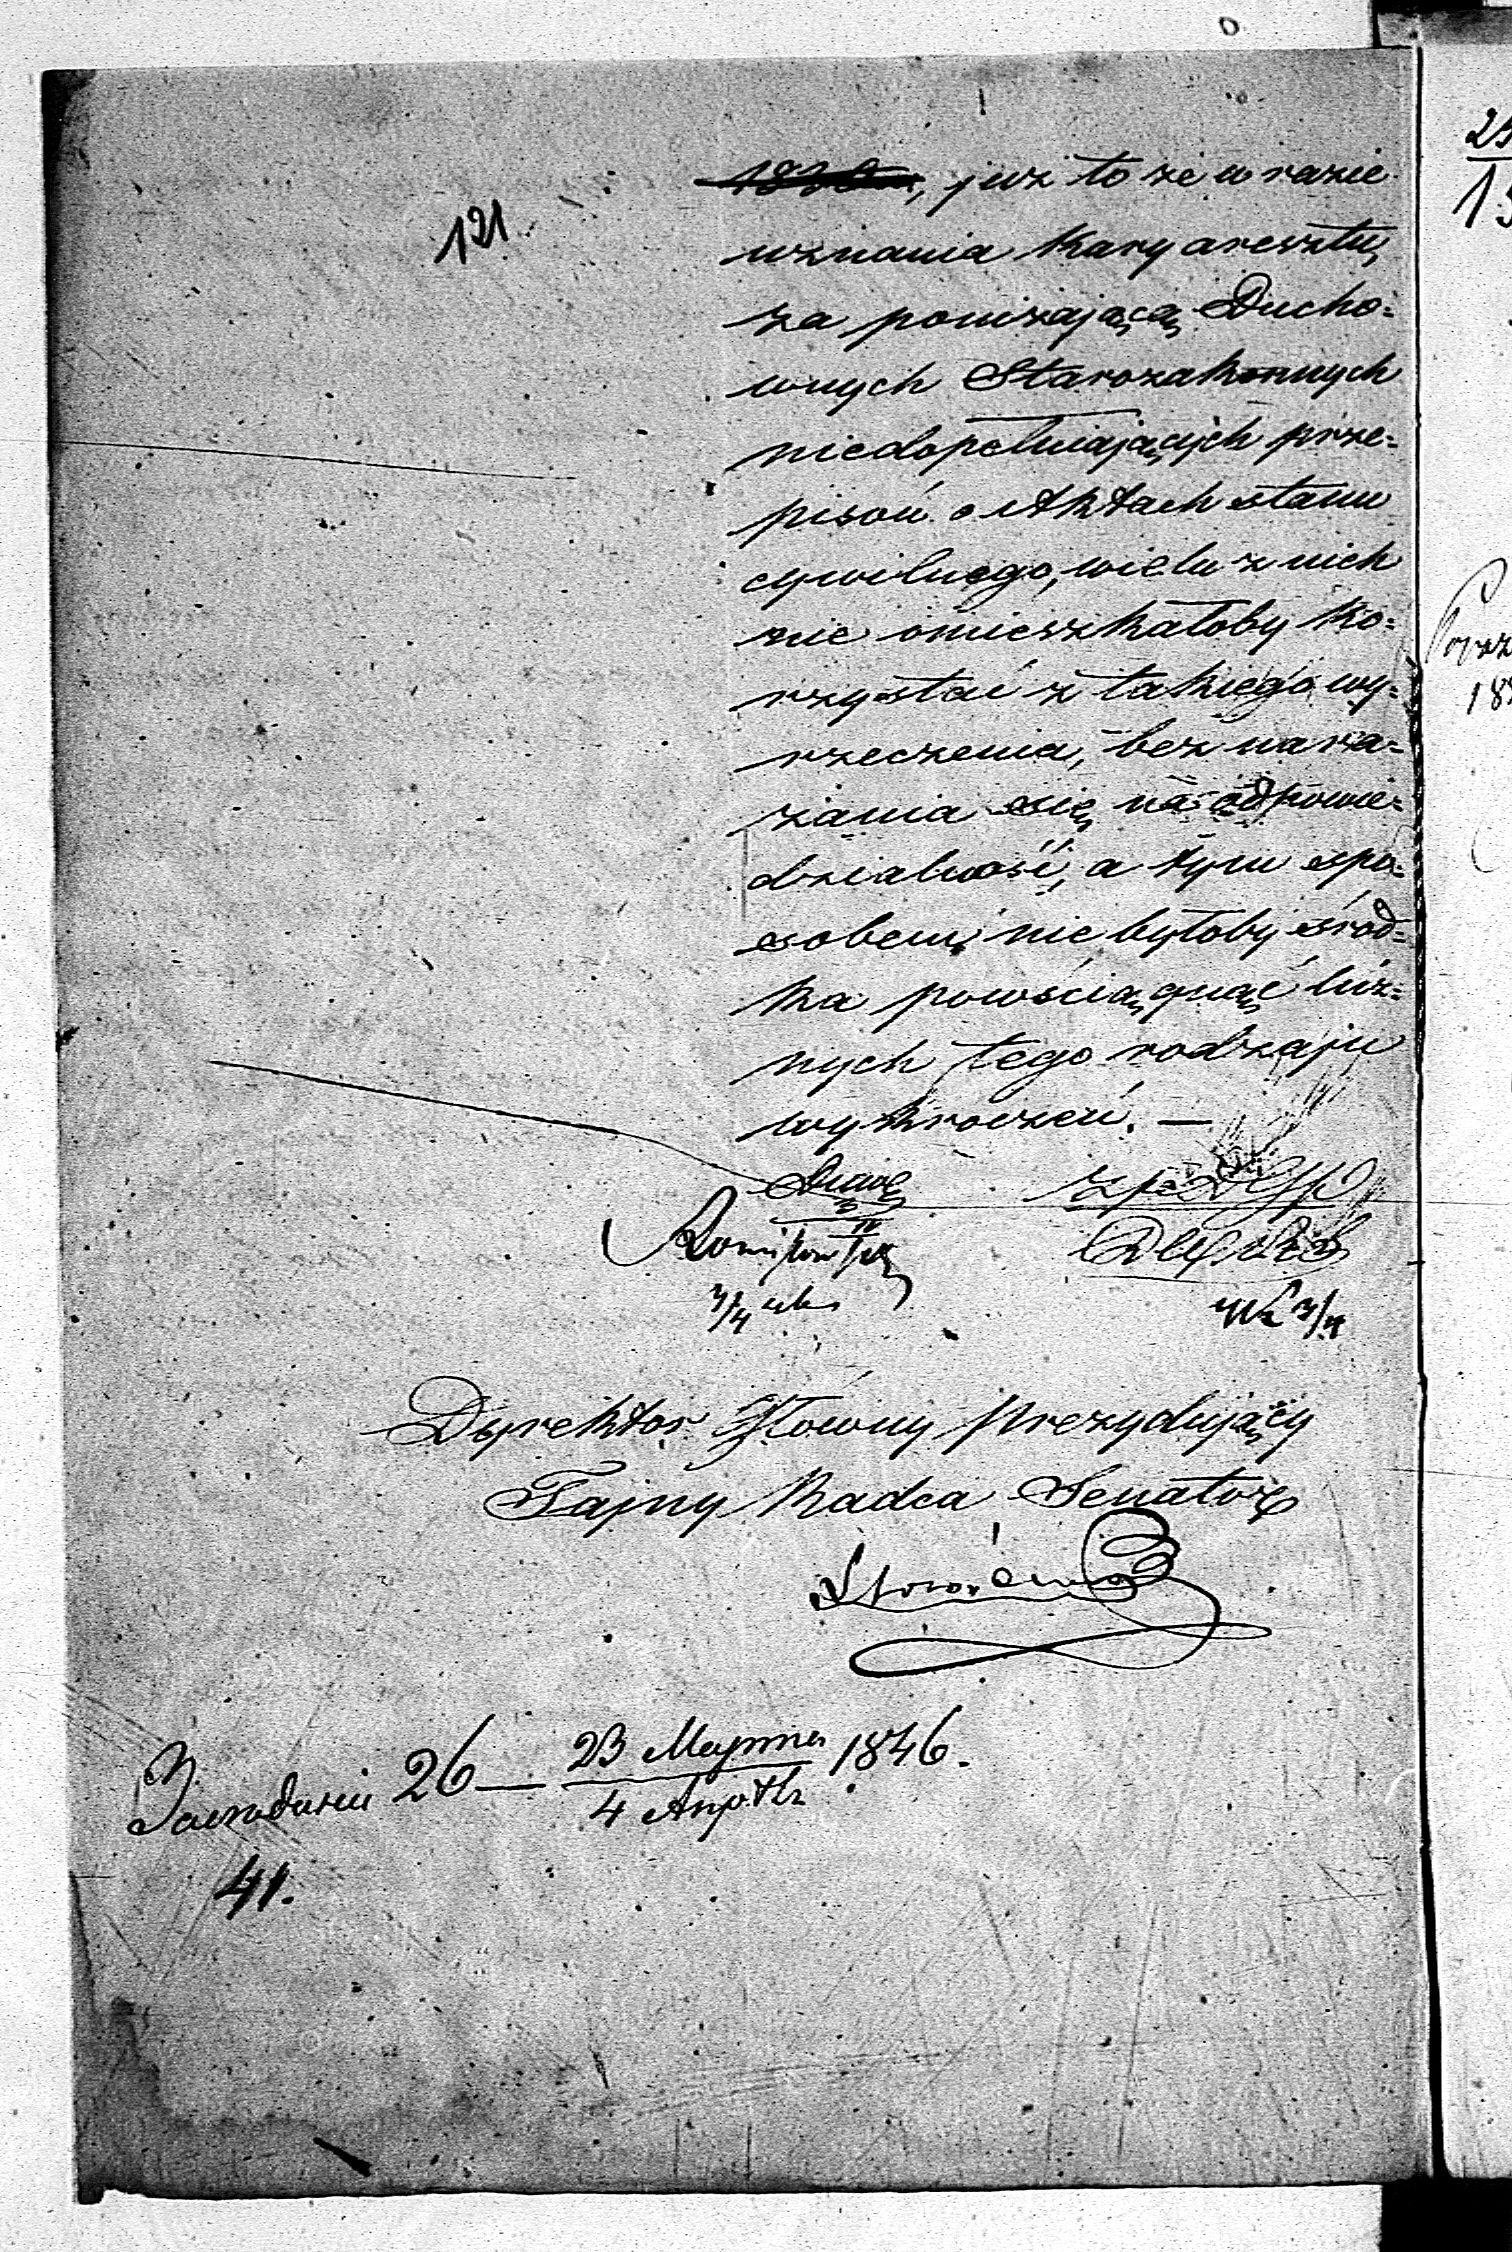 121
już to że w razie
uznania kary aresztu,
za poniżającą Ducho=
wnych Starozakonnych
niedopełniających prze=
pisów o Aktach stanu
cywilnego, wielu z nich
nie omieszkałoby ko=
rzystać z takiego wy=
rzeczenia, bez nara=
żania się na odpowie=
dzialność, a tym spo=
sobem, nie byłoby środ=
ka powściągnąć licz=
nych tego rodzaju
wykroczeń. —
3/4
3/4
Dyrektor Główny Prezydujący
Tajny Radca Senator
26 — 23 Марта / 4 Апрѣл 1846.
41.
21